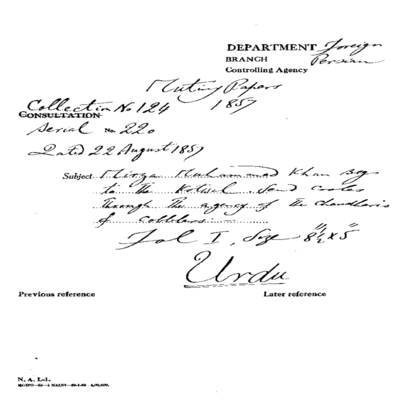 DEPARTMENT Foreign
BRANCH Persian
Controlling Agency
Mutiny Papers
Collection No 124 1857
CONSULTATION
Serial No 220
Dated 22 August 1857
Subject Mirza Muhammad Khan says
to the Kotwal. Send coolies
through the agency of the Chaudhris
of cobblers.
Fol I, Size 8½" x 5"
Urdu
Previous reference Later reference
N. A. I.-1.